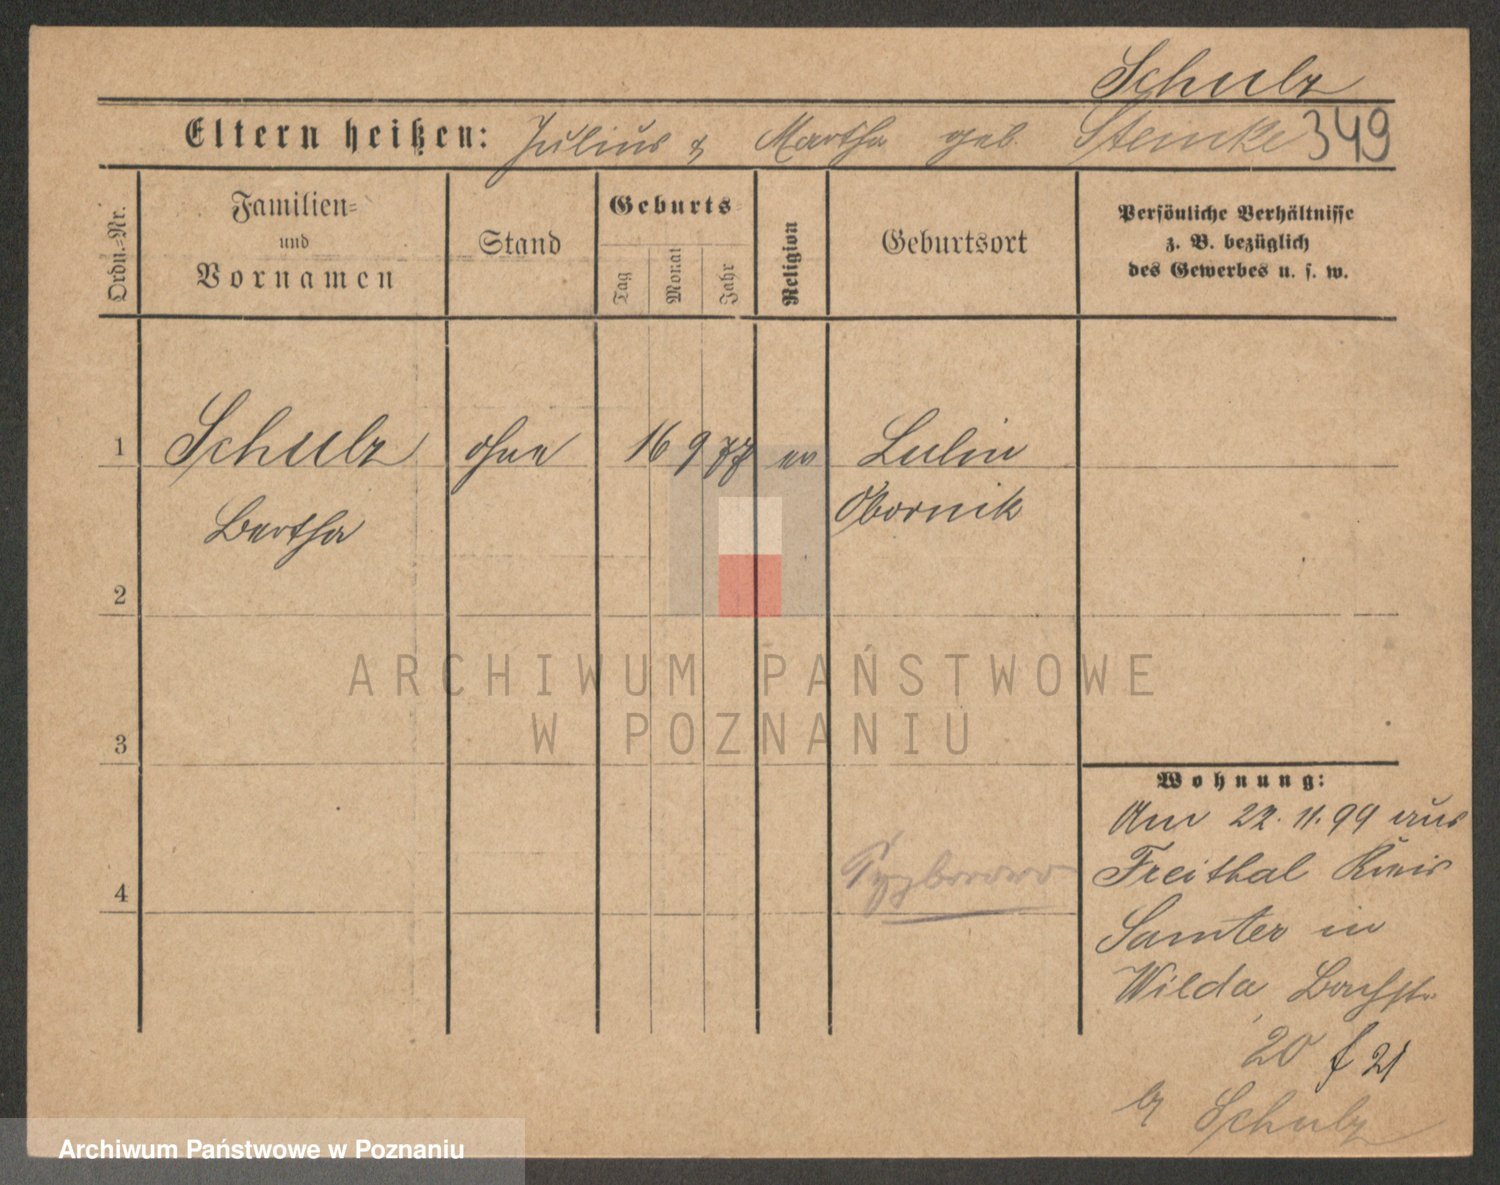 Schulz
Eltern heißen: Julius & Martha geb. Steinke 349
Ordn.=Nr.
Familien=
und
Vornamen
Stand
Geburts=
Tag
Monat
Jahr
Religion
Geburtsort
Persönliche Verhältnisse
z. B. bezüglich
des Gewerbes u. s. w.
1 Schulz ohne 16 9 77 ev Lulin
Bertha Obornik
2
3
4
Wohnung:
Am 22. 11. 99 aus
Freithal Kreis
Samter in
Wilda Bachstr.
20 f 21
b/ Schulz
ARCHIWUM PAŃSTWOWE
W POZNANIU
Archiwum Państwowe w Poznaniu